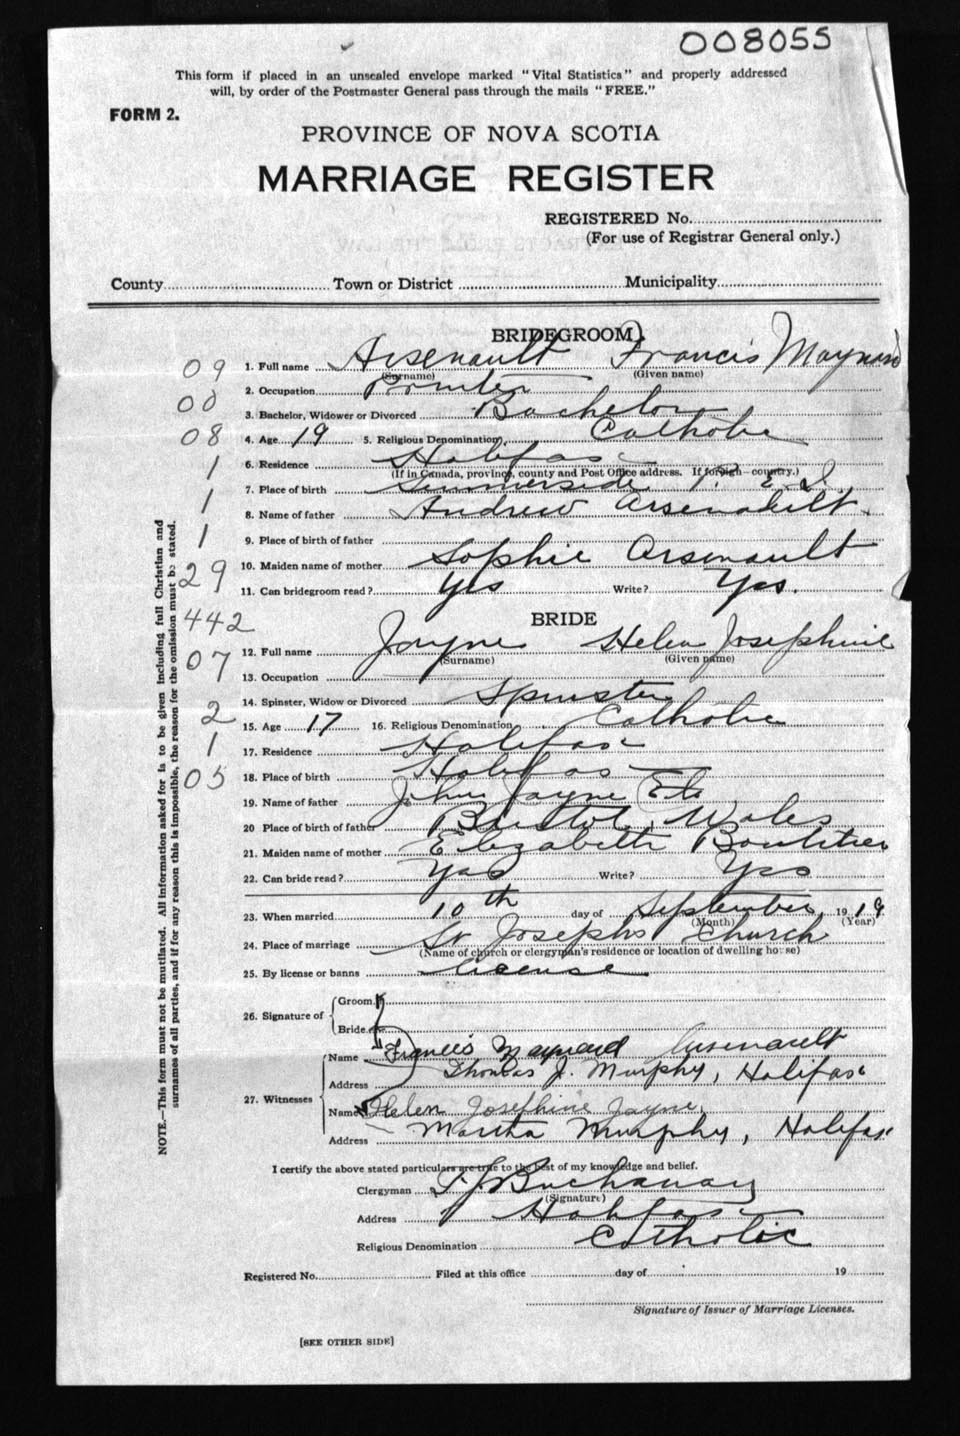 008055
This form if placed in an unsealed envelope marked "Vital Statistics" and properly addressed
will, by order of the Postmaster General pass through the mails "FREE."
FORM 2.
PROVINCE OF NOVA SCOTIA
MARRIAGE REGISTER
REGISTERED No.
(For use of Registrar General only.)
County Town or District Municipality
BRIDEGROOM
09 1. Full name Arsenault Francis Maynard
(Surname) (Given name)
2. Occupation Printer
00 3. Bachelor, Widower or Divorced Bachelor
08 4. Age 19 5. Religious Denomination Catholic
1 6. Residence Halifax
(If in Canada, province, county and Post Office address. If foreign—country.)
1 7. Place of birth Summerside P. E. I.
8. Name of father Andrew Arsenault
1 9. Place of birth of father
10. Maiden name of mother Sophie Arsenault
29 11. Can bridegroom read? Yes Write? Yes.
442 BRIDE
12. Full name Jayne Helen Josephine
07 (Surname) (Given name)
13. Occupation
14. Spinster, Widow or Divorced Spinster
2 15. Age 17 16. Religious Denomination Catholic
1 17. Residence Halifax
05 18. Place of birth Halifax
19. Name of father John Jayne
20 Place of birth of father Bristol, Wales
21. Maiden name of mother Elizabeth
22. Can bride read? Yes Write? Yes
23. When married 10th day of September 1919
(Month) (Year)
24. Place of marriage St Josephs Church
(Name of church or clergyman's residence or location of dwelling house)
25. By license or banns License
26. Signature of Groom
Bride
27. Witnesses Name Francis Maynard Arsenault
Thomas J. Murphy, Halifax
Address
Name Helen Josephine Jayne
Martha Murphy, Halifax
Address
I certify the above stated particulars are true to the best of my knowledge and belief.
Clergyman Buchanan
(Signature)
Address Halifax
Religious Denomination Catholic
Registered No. Filed at this office day of 19
Signature of Issuer of Marriage Licenses.
[SEE OTHER SIDE]
NOTE.—This form must not be mutilated. All information asked for is to be given including full Christian and
surnames of all parties, and if for any reason this is impossible, the reason for the omission must be stated.